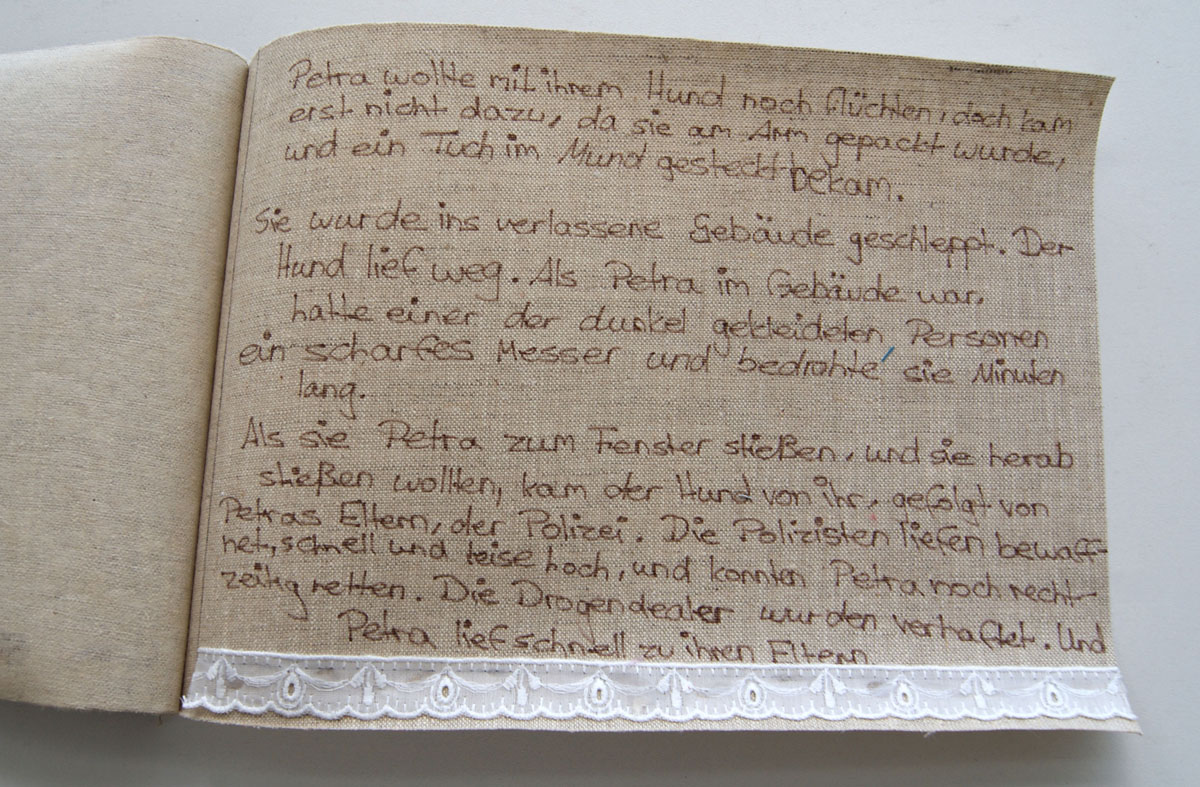 Petra wollte mit ihrem Hund noch flüchten, doch kam
erst nicht dazu, da sie am Arm gepackt wurde,
und ein Tuch im Mund gesteckt bekam.
Sie wurde ins verlassene Gebäude geschleppt. Der
Hund lief weg. Als Petra im Gebäude war,
hatte einer der dunkel gekleideten Personen
ein scharfes Messer und bedrohte sie Minuten
lang.
Als sie Petra zum Fenster stießen, und sie herab
stießen wollten, kam der Hund von ihr, gefolgt von
Petras Eltern, der Polizei. Die Polizisten liefen bewaff-
net, schnell und leise hoch, und konnten Petra noch recht-
zeitig retten. Die Drogendealer wurden verhaftet. Und
Petra lief schnell zu ihren Eltern